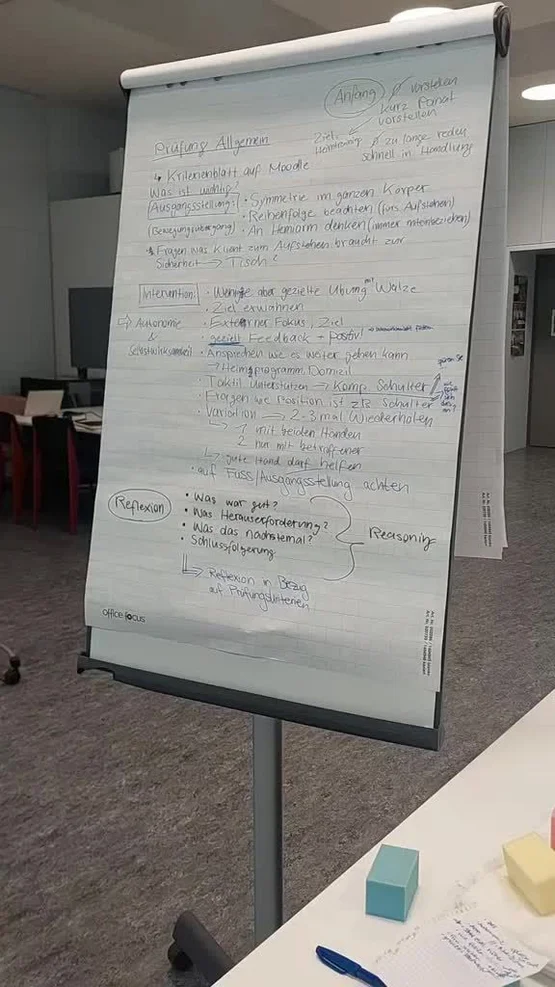 Anfang
vorstellen
kurz Panat
vorstellen
Ziel
zu lange reden
schnell in Handlung
Prüfung Allgemein
↳ Kriterienblatt auf Moodle
Was ist wichtig?
Ausgangsstellung: • Symmetrie im ganzen Körper
• Reihenfolge beachten (fürs Aufstehen)
(Bewegungsübergang) • An Hemiarm denken (immer miteinbeziehen)
Fragen was Klient zum Aufstehen braucht zur
Sicherheit → Tisch?
Intervention: • Wenige aber gezielte Übung mit Walze
• Ziel erwähnen
⇒ Autonomie • Externer Fokus, Ziel
& • gezielt Feedback + positiv!
Selbstwirksamkeit • Ansprechen wie es weiter gehen kann
→ Heimprogramm Domizil
• Taktil Unterstützen → Komp. Schulter
• Fragen wie Position ist zB Schulter
• Variation → 2-3 mal Wiederholen
↳ 1 mit beiden Händen
2 nur mit betroffener
↳ gute Hand darf helfen
• auf Fuss/Ausgangsstellung achten
Reflexion
• Was war gut?
• Was Herausforderung?
• Was das nächstemal?
• Schlussfolgerung
Reasoning
↳ Reflexion in Bezug
auf Prüfungskriterien
office focus